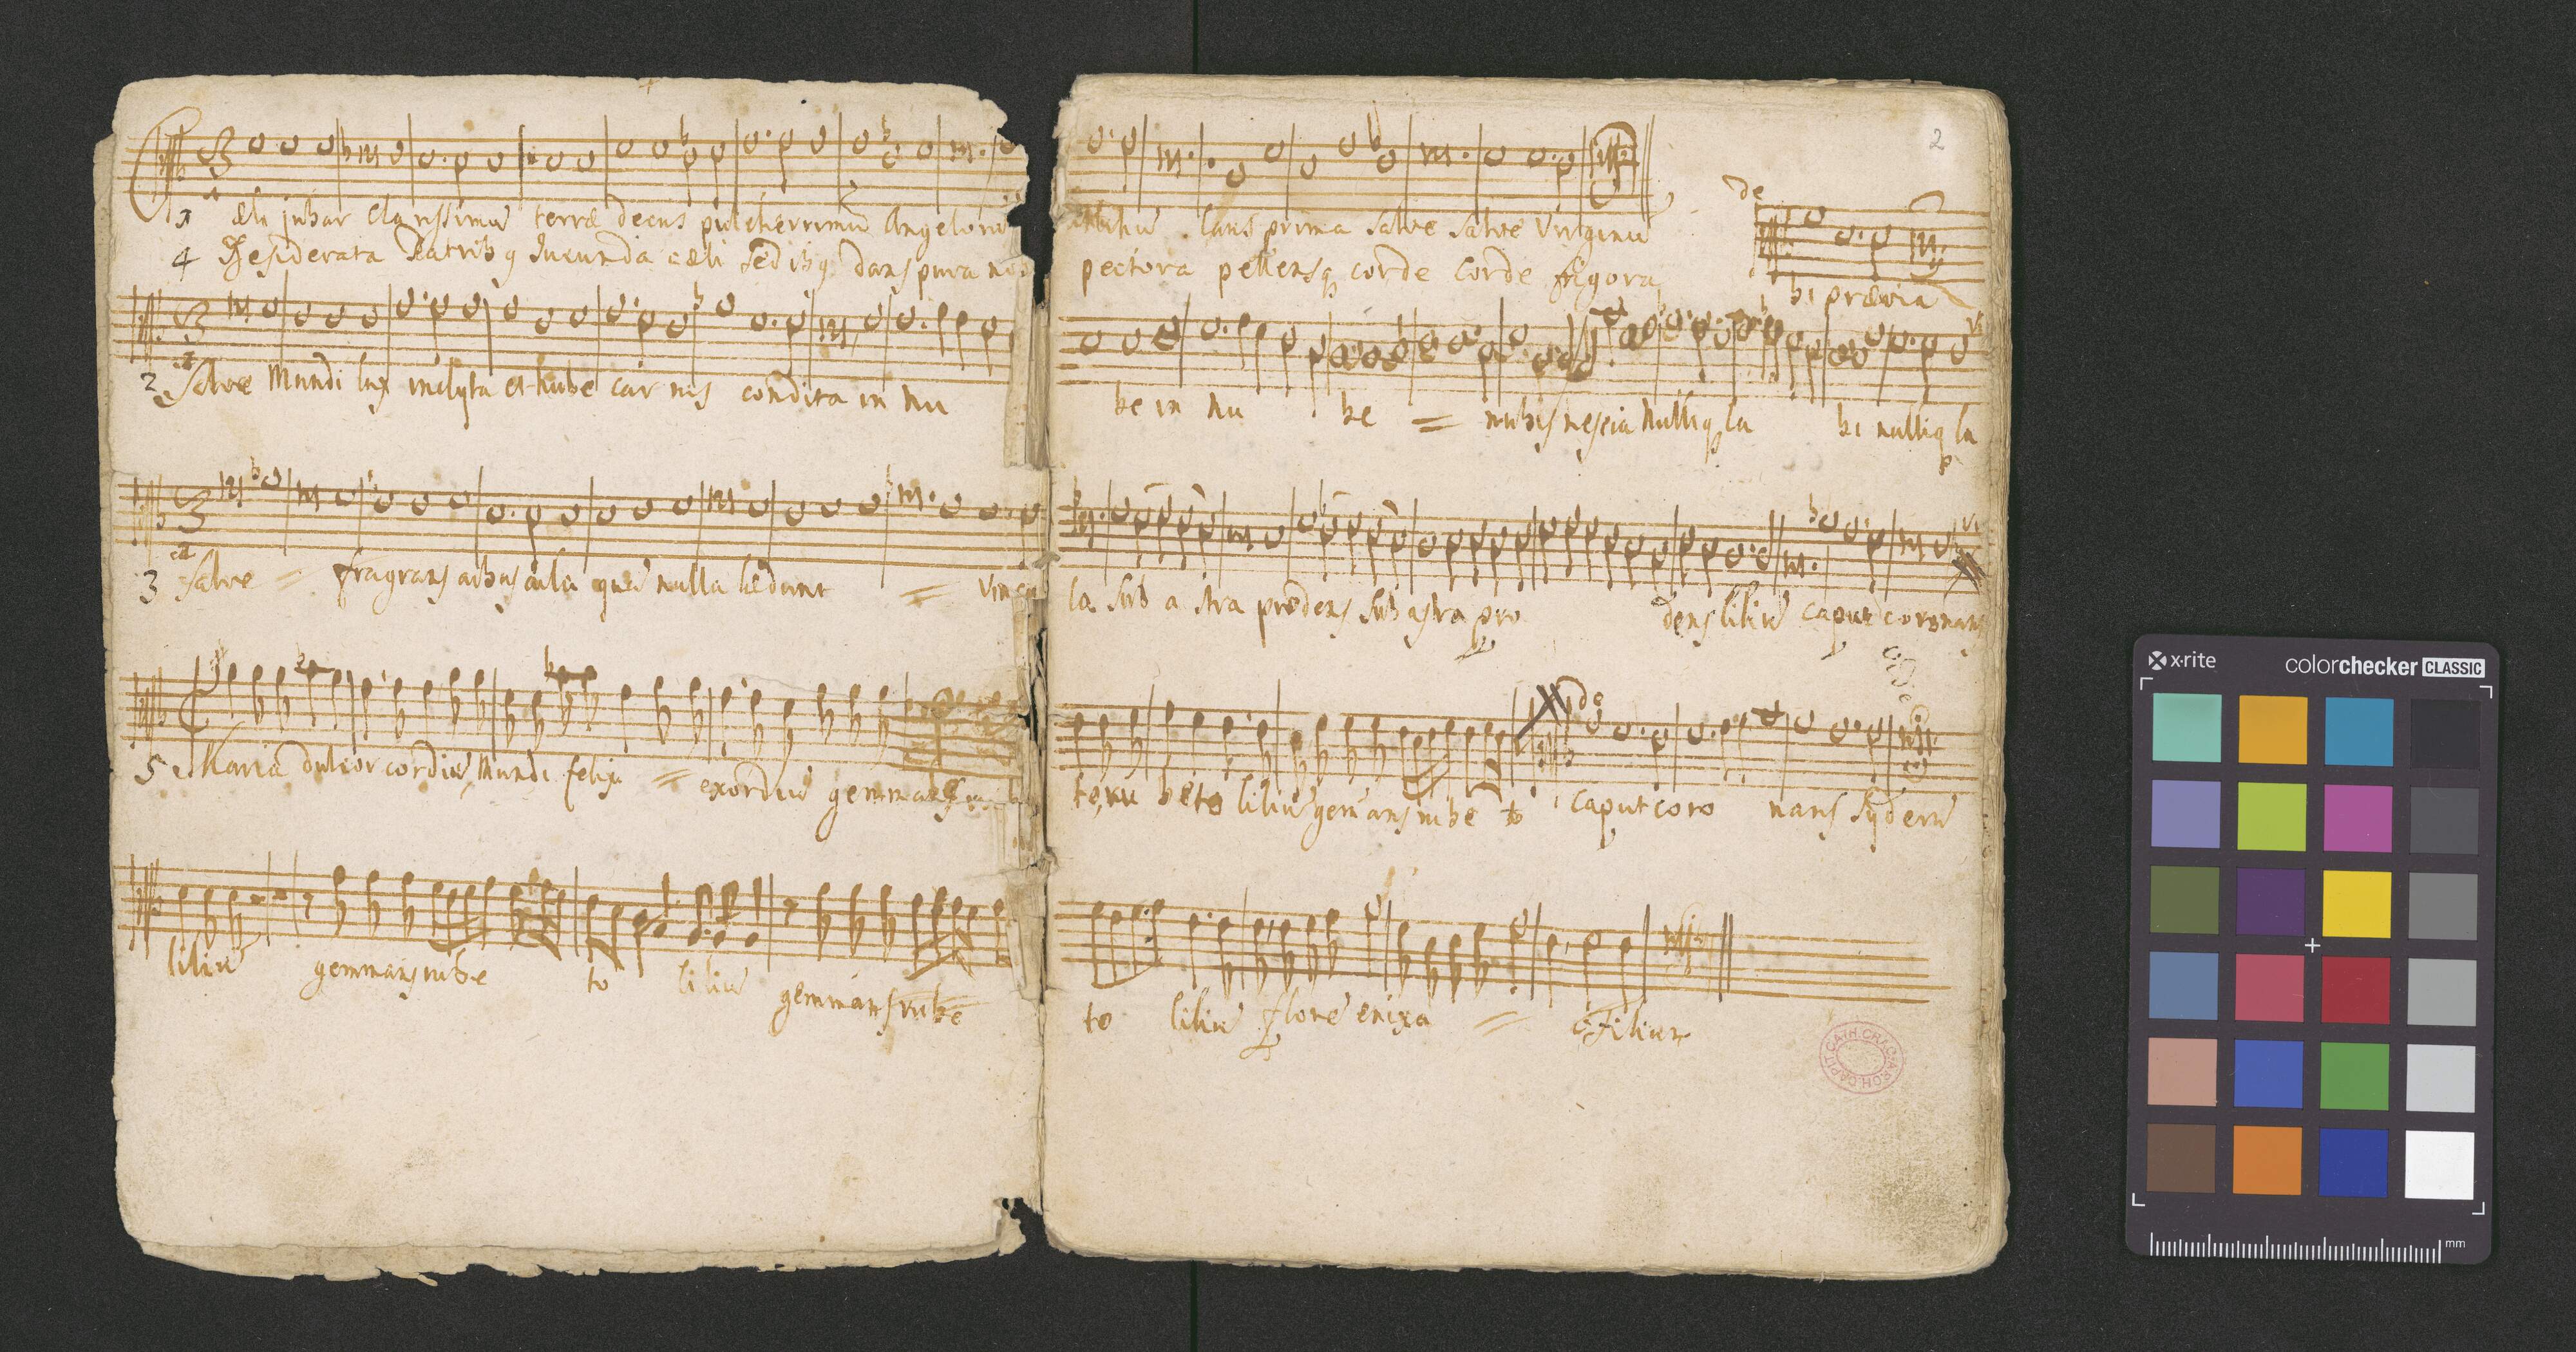 2
1 Cæli jubar clarissimū terræ decus pulcherrimū Angelorū
4 Desiderata Patribq Jucunda cæli sedibq dans pura
2 Salve Mundi lux inclyta et nube carnis condita in nu
3 Salve = fragrans quē nulla lædunt = vincu
5 Maria dulcor cordiū, Mundi felix = exordiū gemmans
liliū gemmans rube to liliū gemmans rube
laus prima salve salve Virginū
pectora pellensq corde corde frigora
de
bi prævia
be in nu be = nubis nescia Nulliq la bi nulliq la
Vi
la sub astra prodens sub astra pro dens liliū caput coronans
Vi
de
to, ru beto liliū gemans rube to caput coro nans syderū
to liliū flore enixa = Filium
ARCH. CAPIT. CATH. CRAC.
x·rite
colorchecker CLASSIC
mm